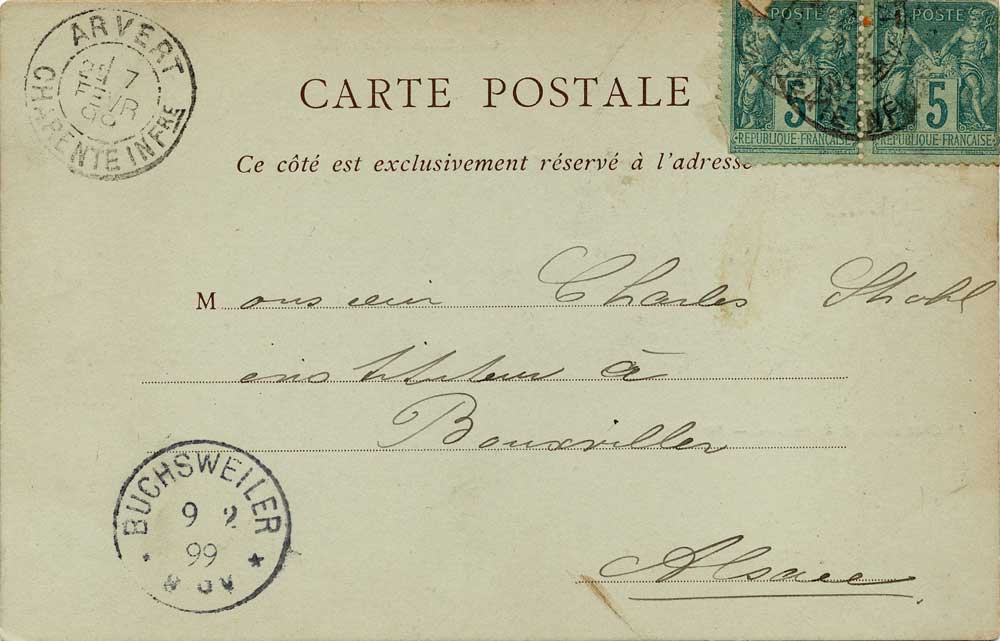 ARVERT
7
FEVR
99
CHARENTE INFRE
POSTE POSTE
5 5
REPUBLIQUE FRANÇAISE REPUBLIQUE FRANÇAISE
CARTE POSTALE
Ce côté est exclusivement réservé à l'adresse
Monsieur Charles Stohl
instituteur à
Bouxviller
Alsace
BUCHSWEILER
9 2
99